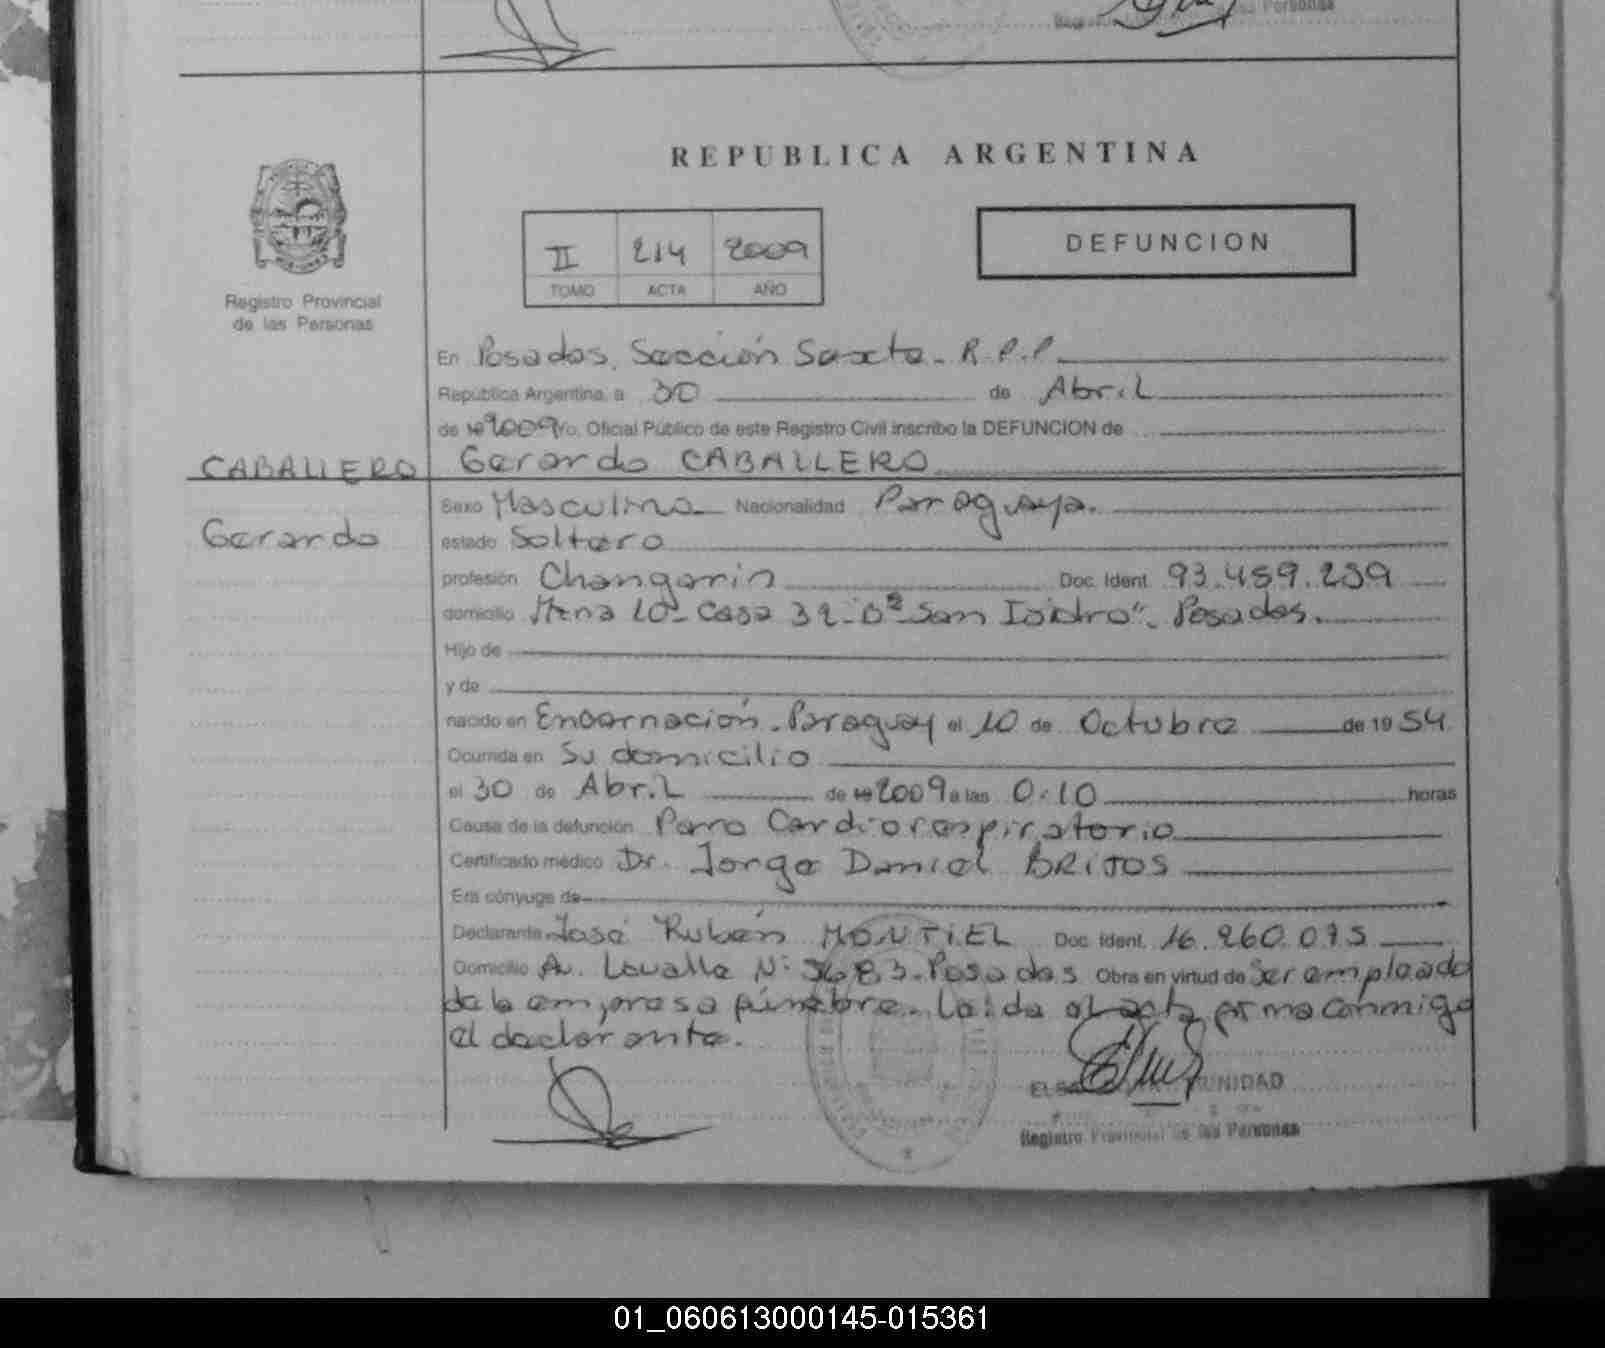 REPUBLICA ARGENTINA
II 214 2009
TOMO ACTA AÑO
DEFUNCION
Registro Provincial
de las Personas
En Posadas, Sección Sexta - R.P.P.
República Argentina, a 30 de Abril
de 19 2009 Yo, Oficial Público de este Registro Civil inscribo la DEFUNCION de
CABALLERO Gerardo CABALLERO
Gerardo
Sexo Masculino Nacionalidad Paraguaya.
estado Soltero
profesión Changarin Doc. Ident. 93.459.259
domicilio Mzna 10 - Casa 32 - Bº "San Isidro" - Posadas.
Hijo de
y de
nacido en Encarnación - Paraguay el 10 de Octubre de 19 54
Ocurrida en Su domicilio
el 30 de Abril de 19 2009 a las 0:10 horas
Causa de la defunción Paro Cardiorespiratorio
Certificado médico Dr. Jorge Daniel BRITOS
Era cónyuge de
Declarante José Rubén MONTIEL Doc. Ident. 16.260.075
Domicilio Av. Lavalle Nº 5683 - Posadas Obra en virtud de Ser empleado
de la empresa fúnebre. Leída el acta firma conmigo
el declarante.
UNIDAD
Registro Provincial de las Personas
01_060613000145-015361